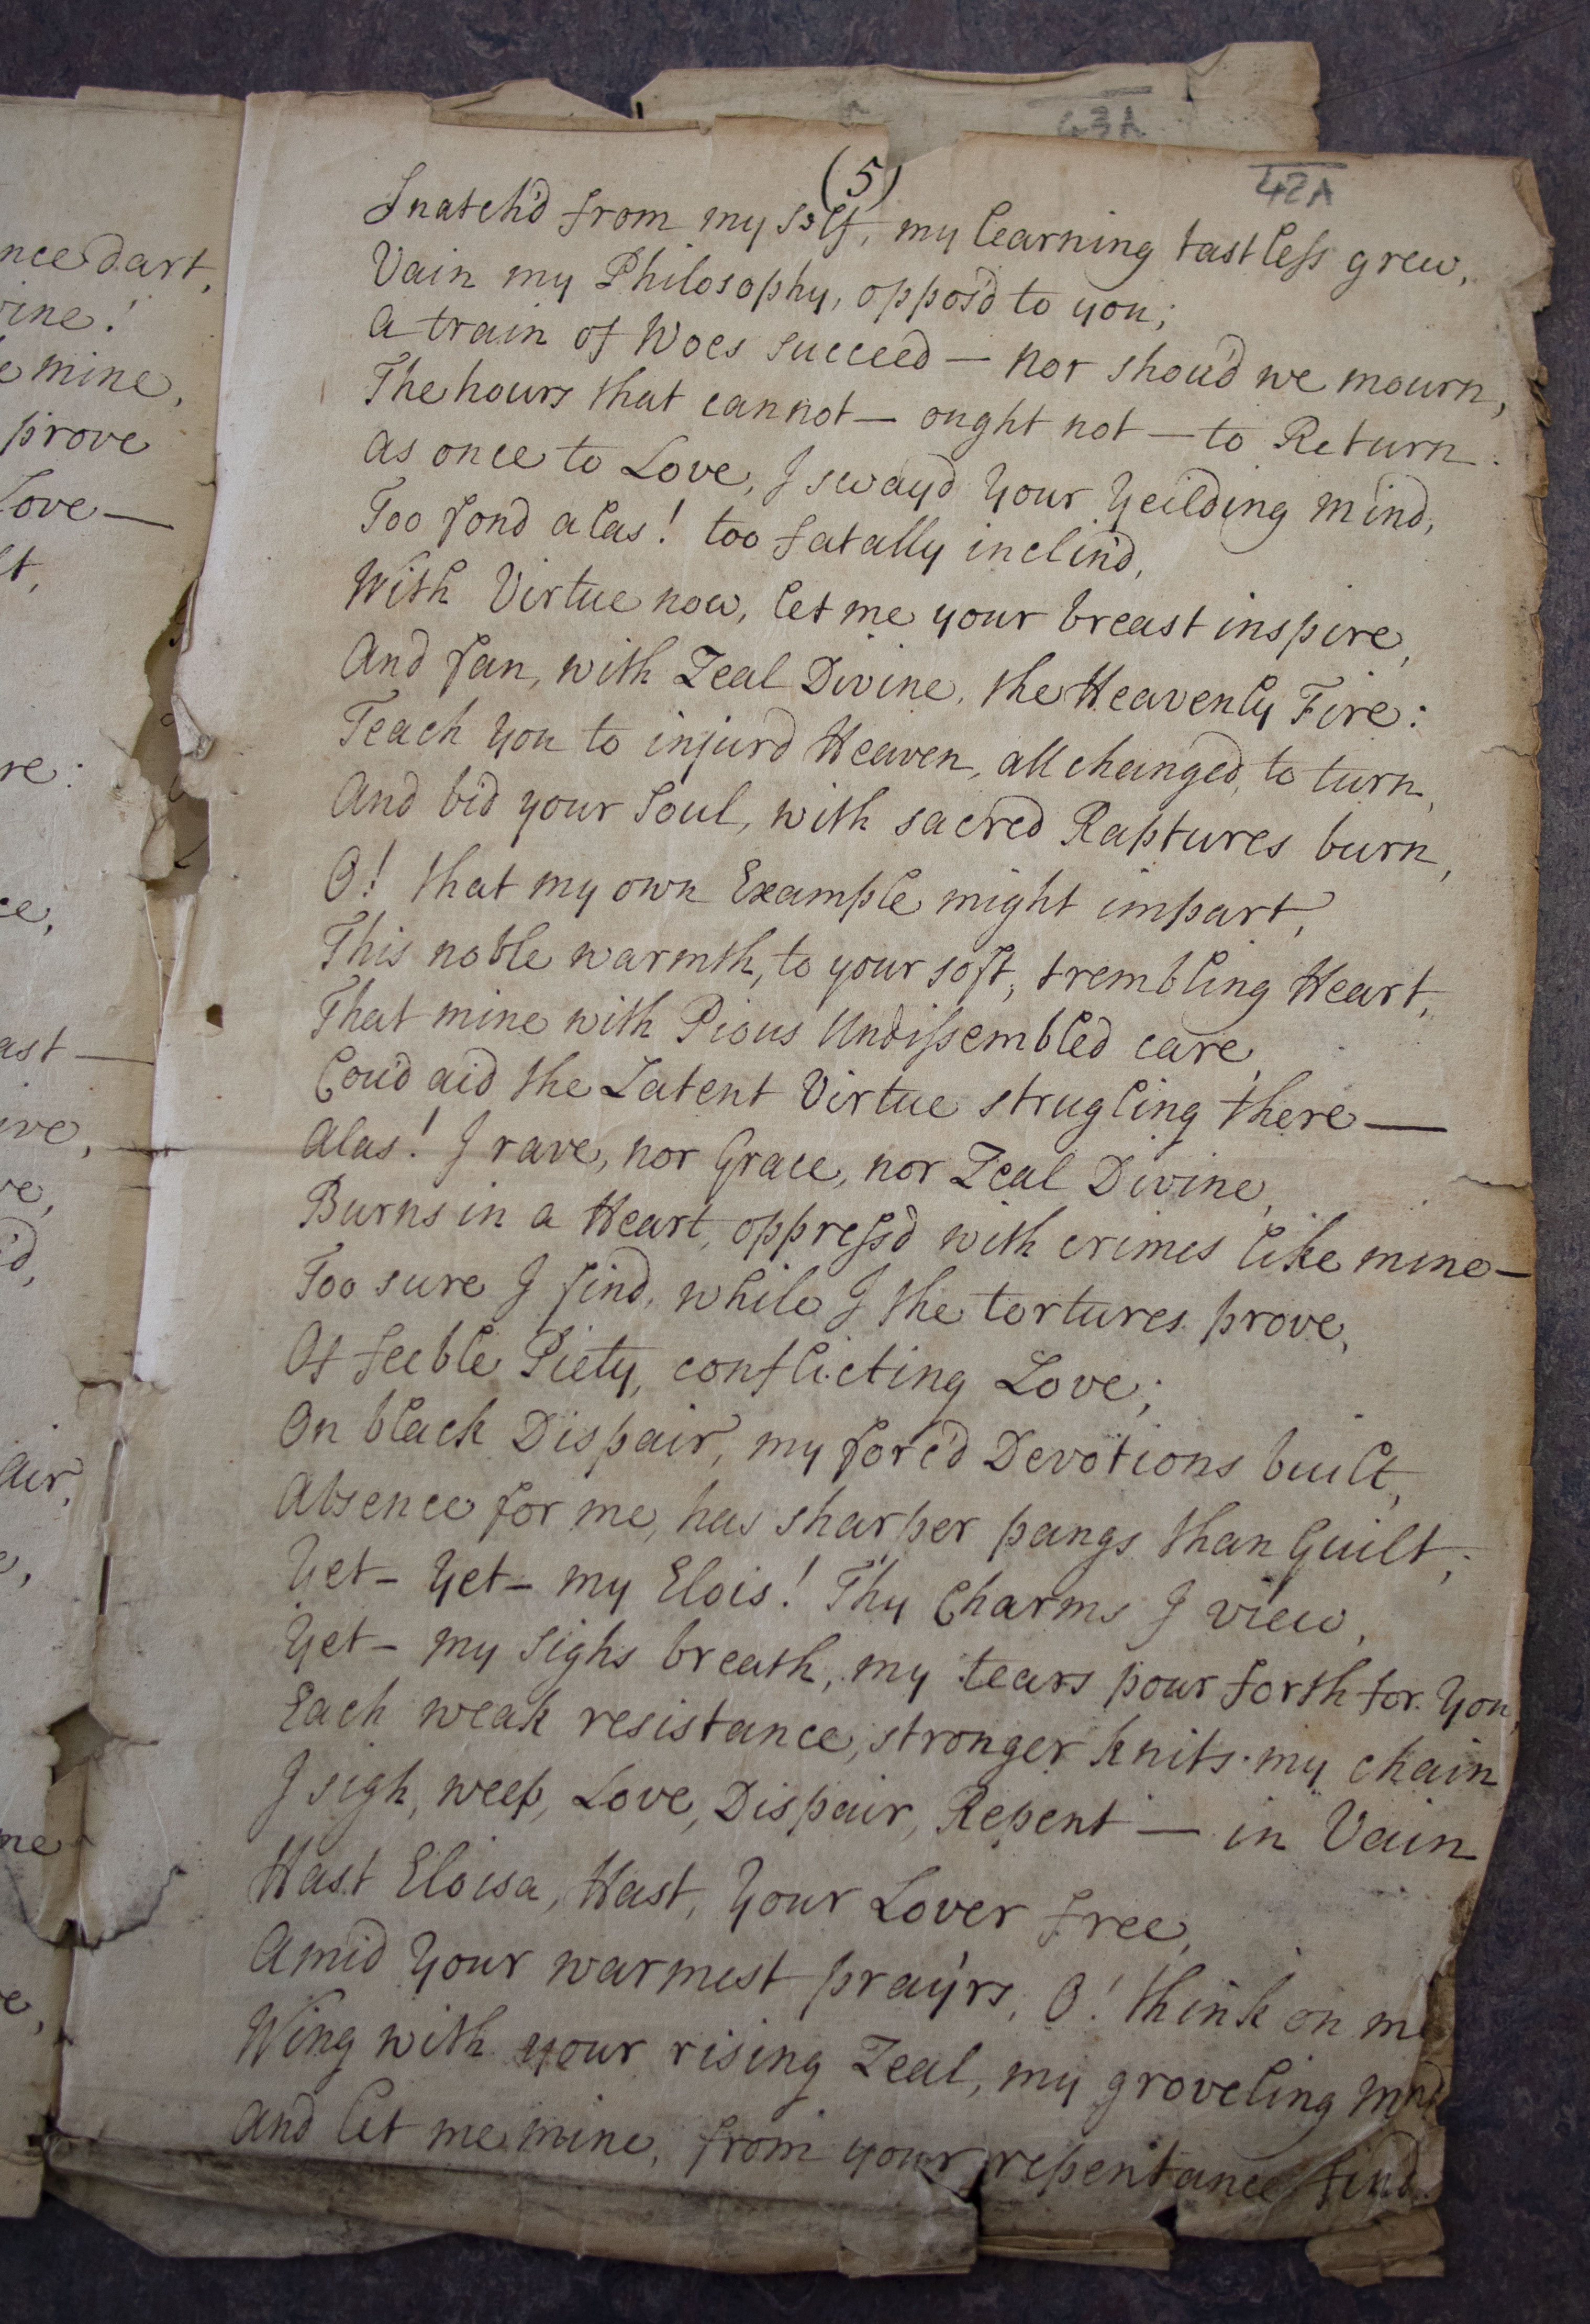 nce dart,
ine!
e mine,
prove
Love—
lt,
re:
ce,
ast—
ive,
ve,
d,
air,
me
e,
43A
42A
(5)
Snatch'd from my self, my learning tastless grew,
Vain my Philosophy, oppos'd to you;
a train of Woes succeed — nor shou'd we mourn,
The hours that cannot — ought not — to Return.
as once to Love, I sway'd Your Yeilding mind,
Too fond alas! too fatally inclin'd,
With Virtue now, let me your breast inspire,
And fan, with Zeal Divine, the Heavenly Fire:
Teach you to injur'd Heaven, all chainged, to turn,
And bid your Soul, with sacred Raptures burn,
O! that my own Example might impart,
This noble warmth, to your soft, trembling Heart,
That mine with Pious Undissembled care,
Cou'd aid the Latent Virtue strugling there—
alas! I rave, nor Grace, nor Zeal Divine,
Burns in a Heart, oppress'd with crimes like mine—
Too sure I find, while I the tortures prove,
Of feeble Piety, conflicting Love;
On black Dispair, my forc'd Devotions built,
Absence for me, has sharper pangs than Guilt;
Yet— Yet— my Elois! Thy Charms I view,
Yet— my Sighs breath, my tears pour forth for You,
Each weak resistance, stronger knits my chain
I sigh, weep, Love, Dispair, Repent — in Vain
Hast Eloisa, Hast, Your Lover free,
Amid Your warmest pray'rs, O! think on me
Wing with your rising Zeal, my groveling mind
and let me mine, from your repentance find.